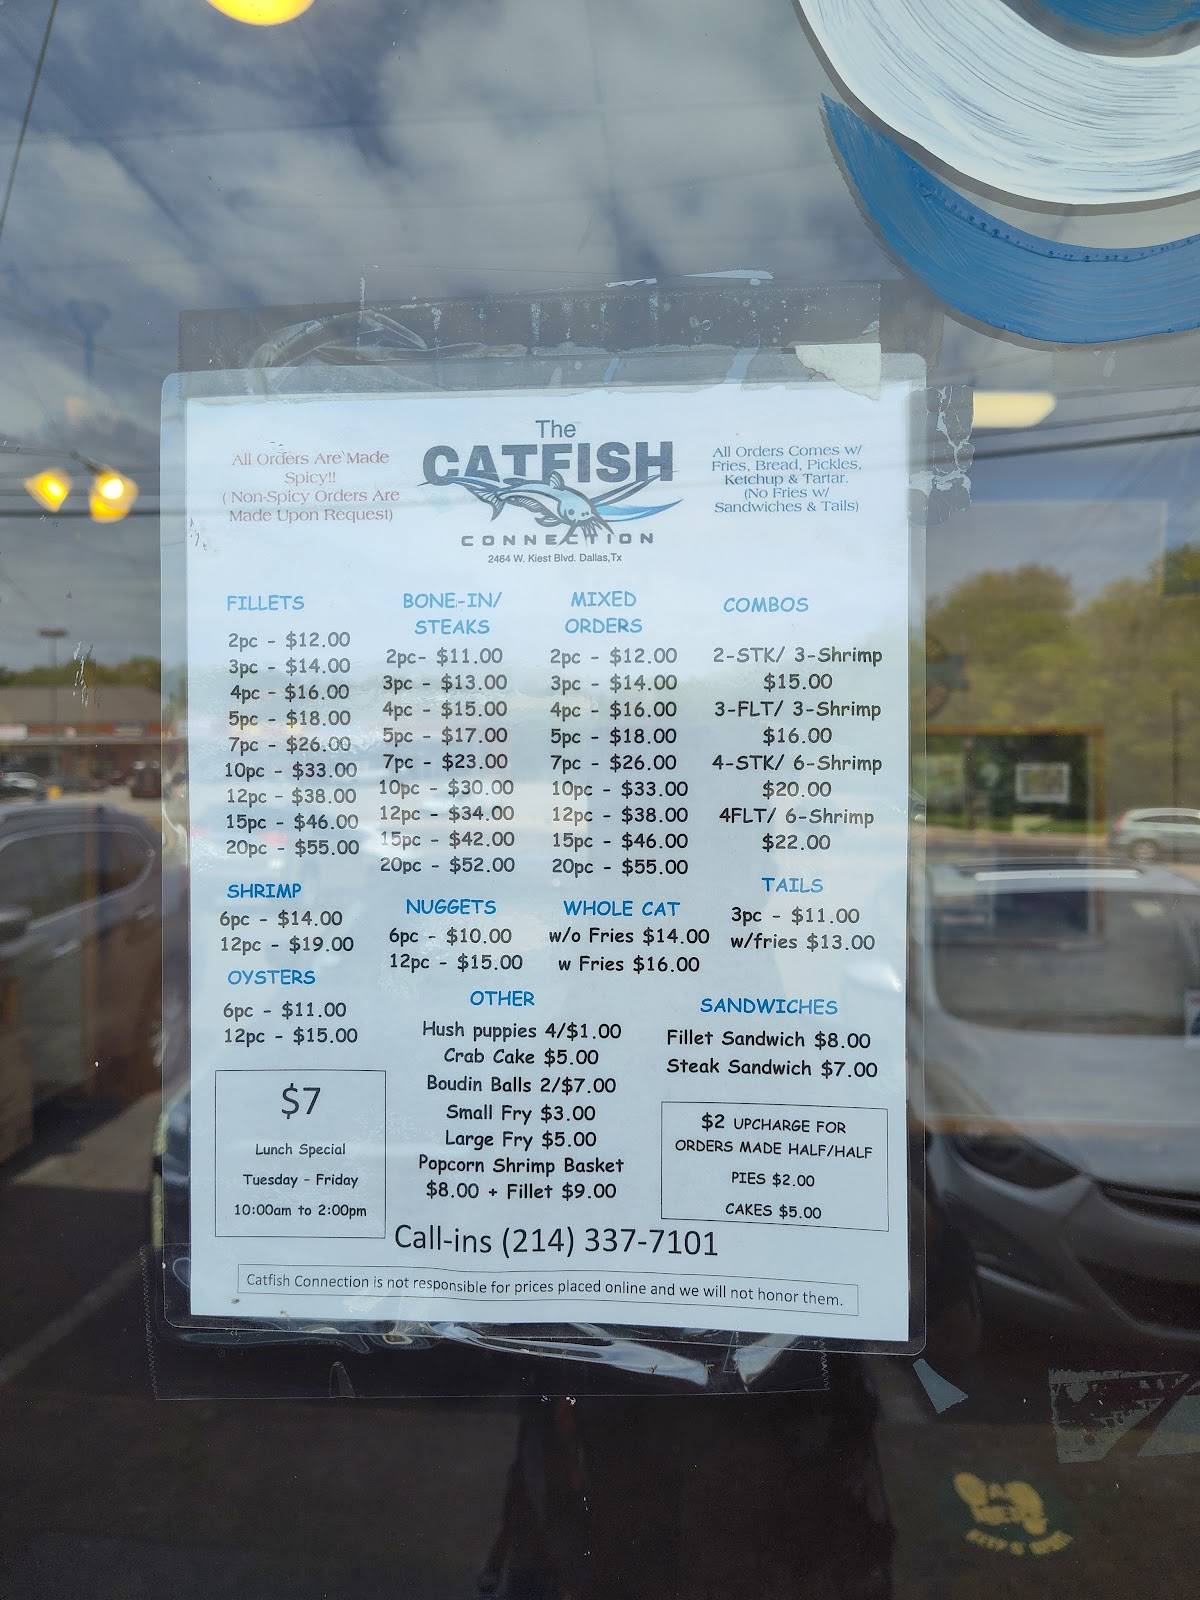 All Orders Are Made
Spicy!!
( Non-Spicy Orders Are
Made Upon Request)
The
CATFISH
CONNECTION
2464 W. Kiest Blvd. Dallas,Tx
All Orders Comes w/
Fries, Bread, Pickles,
Ketchup & Tartar.
(No Fries w/
Sandwiches & Tails)
FILLETS
2pc - $12.00
3pc - $14.00
4pc - $16.00
5pc - $18.00
7pc - $26.00
10pc - $33.00
12pc - $38.00
15pc - $46.00
20pc - $55.00
SHRIMP
6pc - $14.00
12pc - $19.00
OYSTERS
6pc - $11.00
12pc - $15.00
$7
Lunch Special
Tuesday - Friday
10:00am to 2:00pm
BONE-IN/
STEAKS
2pc- $11.00
3pc - $13.00
4pc - $15.00
5pc - $17.00
7pc - $23.00
10pc - $30.00
12pc - $34.00
15pc - $42.00
20pc - $52.00
NUGGETS
6pc - $10.00
12pc - $15.00
MIXED
ORDERS
2pc - $12.00
3pc - $14.00
4pc - $16.00
5pc - $18.00
7pc - $26.00
10pc - $33.00
12pc - $38.00
15pc - $46.00
20pc - $55.00
WHOLE CAT
w/o Fries $14.00
w Fries $16.00
OTHER
Hush puppies 4/$1.00
Crab Cake $5.00
Boudin Balls 2/$7.00
Small Fry $3.00
Large Fry $5.00
Popcorn Shrimp Basket
$8.00 + Fillet $9.00
COMBOS
2-STK/ 3-Shrimp
$15.00
3-FLT/ 3-Shrimp
$16.00
4-STK/ 6-Shrimp
$20.00
4FLT/ 6-Shrimp
$22.00
TAILS
3pc - $11.00
w/fries $13.00
SANDWICHES
Fillet Sandwich $8.00
Steak Sandwich $7.00
$2 UPCHARGE FOR
ORDERS MADE HALF/HALF
PIES $2.00
CAKES $5.00
Call-ins (214) 337-7101
Catfish Connection is not responsible for prices placed online and we will not honor them.